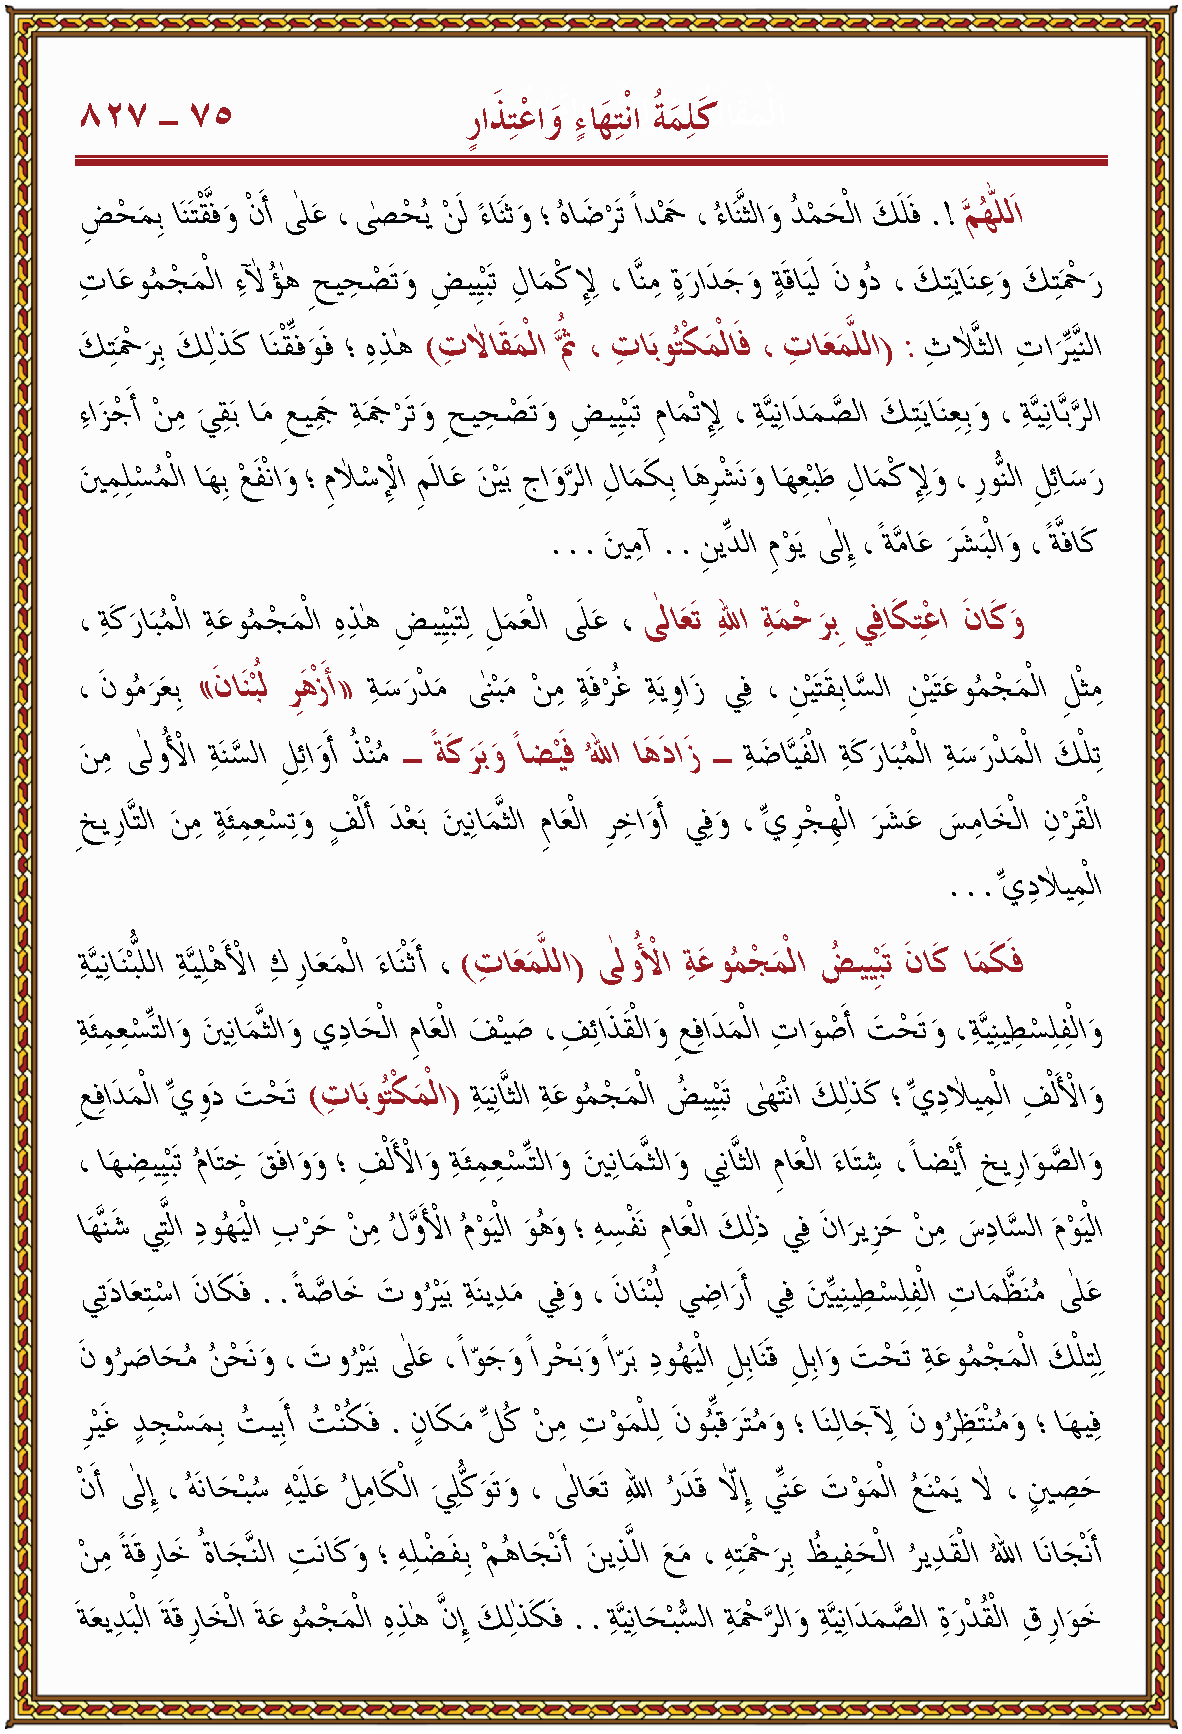 كَلِمَةُ انْتِهَاءٍ وَاعْتِذَارٍ ٧٥ ـ ٨٢٧
اَللّٰهُمَّ ! . فَلَكَ الْحَمْدُ وَالثَّنَاءُ ، حَمْداً تَرْضَاهُ ؛ وَثَنَاءً لَنْ يُحْصٰى ، عَلٰى أَنْ وَفَّقْتَنَا بِمَحْضِ
رَحْمَتِكَ وَعِنَايَتِكَ ، دُونَ لَيَاقَةٍ وَجَدَارَةٍ مِنَّا ، لِإِكْمَالِ تَبْيِيضِ وَتَصْحِيحِ هٰؤُلَآءِ الْمَجْمُوعَاتِ
النيِّرَاتِ الثَّلاٰثِ : (اللَّمَعَاتِ ، فَالْمَكْتُوبَاتِ ، ثُمَّ الْمَقَالاٰتِ) هٰذِهِ ؛ فَوَفِّقْنَا كَذٰلِكَ بِرَحْمَتِكَ
الرَّبَّانِيَّةِ ، وَبِعِنَايَتِكَ الصَّمَدَانِيَّةِ ، لِإِتْمَامِ تَبْيِيضِ وَتَصْحِيحِ وَتَرْجَمَةِ جَمِيعِ مَا بَقِيَ مِنْ أَجْزَاءِ
رَسَائِلِ النُّورِ ، وَلِإِكْمَالِ طَبْعِهَا وَنَشْرِهَا بِكَمَالِ الرَّوَاجِ بَيْنَ عَالَمِ الْإِسْلاٰمِ ؛ وَانْفَعْ بِهَا الْمُسْلِمِينَ
كَافَّةً ، وَالْبَشَرَ عَامَّةً ، إِلٰى يَوْمِ الدِّينِ . . آمِينَ . . .
وَكَانَ اعْتِكَافِي بِرَحْمَةِ اللهِ تَعَالٰى ، عَلَى الْعَمَلِ لِتَبْيِيضِ هٰذِهِ الْمَجْمُوعَةِ الْمُبَارَكَةِ ،
مِثْلِ الْمَجْمُوعَتَيْنِ السَّابِقَتَيْنِ ، فِي زَاوِيَةِ غُرْفَةٍ مِنْ مَبْنٰى مَدْرَسَةِ «أَزْهَرِ لُبْنَانَ» بِعَرَمُونَ ،
تِلْكَ الْمَدْرَسَةِ الْمُبَارَكَةِ الْفَيَّاضَةِ ـ زَادَهَا اللهُ فَيْضاً وَبَرَكَةً ـ مُنْذُ أَوَائِلِ السَّنَةِ الْأُولٰى مِنَ
الْقَرْنِ الْخَامِسَ عَشَرَ الْهِجْرِيِّ ، وَفِي أَوَاخِرِ الْعَامِ الثَّمَانِينَ بَعْدَ أَلْفٍ وَتِسْعِمِئَةٍ مِنَ التَّارِيخِ
الْمِيلاٰدِيِّ . . .
فَكَمَا كَانَ تَبْيِيضُ الْمَجْمُوعَةِ الْأُولٰى (اللَّمَعَاتِ) ، أَثْنَاءَ الْمَعَارِكِ الْأَهْلِيَّةِ اللُّبْنَانِيَّةِ
وَالْفِلِسْطِينِيَّةِ ، وَتَحْتَ أَصْوَاتِ الْمَدَافِعِ وَالْقَذَائِفِ ، صَيْفَ الْعَامِ الْحَادِي وَالثَّمَانِينَ وَالتِّسْعِمِئَةِ
وَالْأَلْفِ الْمِيلاٰدِيِّ ؛ كَذٰلِكَ انْتَهٰى تَبْيِيضُ الْمَجْمُوعَةِ الثَّانِيَةِ (الْمَكْتُوبَاتِ) تَحْتَ دَوِيِّ الْمَدَافِعِ
وَالصَّوَارِيخِ أَيْضاً ، شِتَاءَ الْعَامِ الثَّانِي وَالثَّمَانِينَ وَالتِّسْعِمِئَةِ وَالْأَلْفِ ؛ وَوَافَقَ خِتَامُ تَبْيِيضِهَا ،
الْيَوْمَ السَّادِسَ مِنْ حَزِيرَانَ فِي ذٰلِكَ الْعَامِ نَفْسِهِ ؛ وَهُوَ الْيَوْمُ الْأَوَّلُ مِنْ حَرْبِ الْيَهُودِ الَّتِي شَنَّهَا
عَلٰى مُنَظَّمَاتِ الْفِلِسْطِينِيِّينَ فِي أَرَاضِي لُبْنَانَ ، وَفِي مَدِينَةِ بَيْرُوتَ خَاصَّةً . . فَكَانَ اسْتِعَادَتِي
لِتِلْكَ الْمَجْمُوعَةِ تَحْتَ وَابِلِ قَنَابِلِ الْيَهُودِ بَرّاً وَبَحْراً وَجَوّاً ، عَلٰى بَيْرُوتَ ، وَنَحْنُ مُحَاصَرُونَ
فِيهَا ؛ وَمُنْتَظِرُونَ لِآجَالِنَا ؛ وَمُتَرَقِّبُونَ لِلْمَوْتِ مِنْ كُلِّ مَكَانٍ . فَكُنْتُ أَبِيتُ بِمَسْجِدٍ غَيْرِ
حَصِينٍ ، لاٰ يَمْنَعُ الْمَوْتَ عَنِّي إِلاّٰ قَدَرُ اللهِ تَعَالٰى ، وَتَوَكُّلِيَ الْكَامِلُ عَلَيْهِ سُبْحَانَهُ ، إِلٰى أَنْ
أَنْجَانَا اللهُ الْقَدِيرُ الْحَفِيظُ بِرَحْمَتِهِ ، مَعَ الَّذِينَ أَنْجَاهُمْ بِفَضْلِهِ ؛ وَكَانَتِ النَّجَاةُ خَارِقَةً مِنْ
خَوَارِقِ الْقُدْرَةِ الصَّمَدَانِيَّةِ وَالرَّحْمَةِ السُّبْحَانِيَّةِ . . فَكَذٰلِكَ إِنَّ هٰذِهِ الْمَجْمُوعَةَ الْخَارِقَةَ الْبَدِيعَةَ